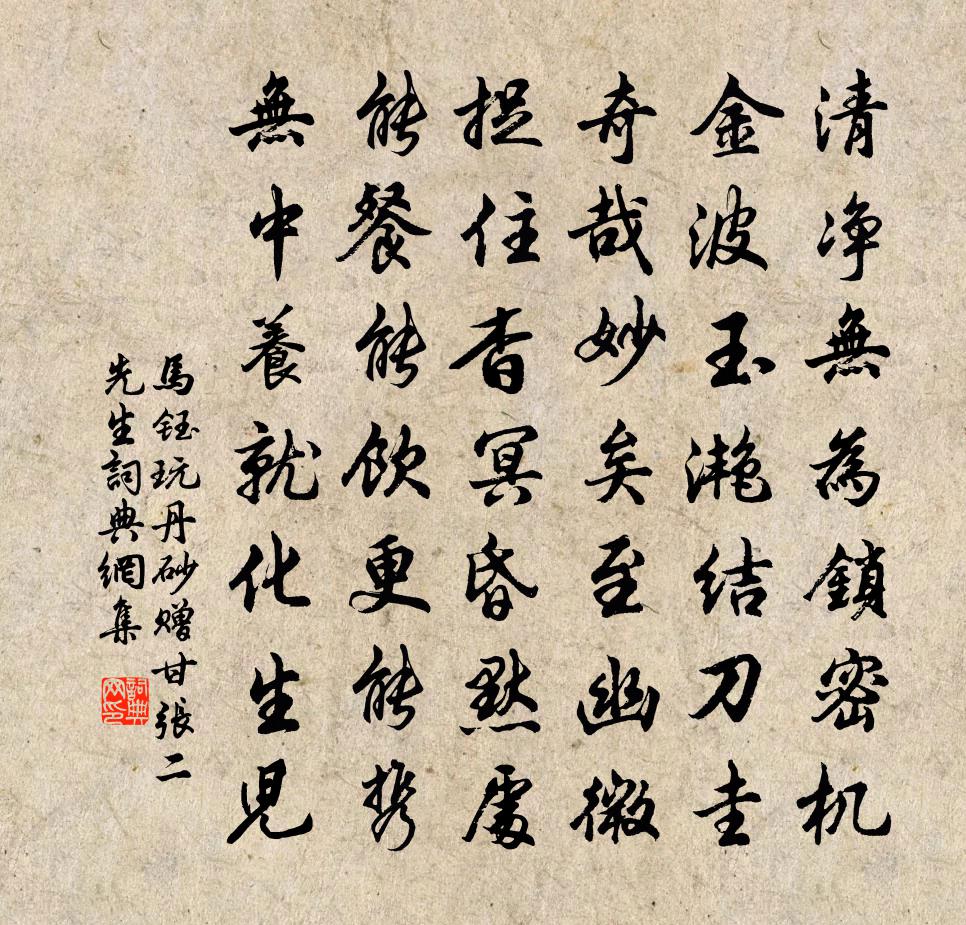 清净無為鎖密机
金波玉滟结刀圭
奇哉妙矣至幽微
捉住杳冥昏默處
能餐能飲更能携
無中養就化生児
馬鈺玩丹砂赠甘張二
先生詞典網集
詞典网印